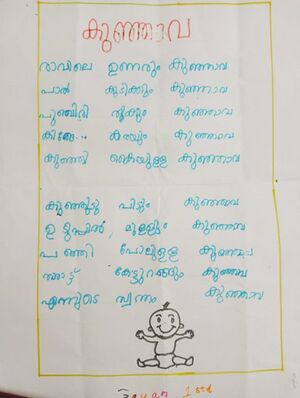 കുഞ്ഞാവ
രാവിലെ ഉണരും കുഞ്ഞാവ
പാൽ കുടിക്കും കുഞ്ഞാവ
പുഞ്ചിരി തൂകും കുഞ്ഞാവ
കരയും കുഞ്ഞാവ
കുഞ്ഞി കൈയുള്ള കുഞ്ഞാവ
പിച്ചും കുഞ്ഞാവ
മുള്ളും കുഞ്ഞാവ
പഞ്ഞി പോലുള്ള കുഞ്ഞാവ
കേട്ടുറങ്ങും കുഞ്ഞാവ
എന്നുടെ സ്വന്തം കുഞ്ഞാവ
1 std